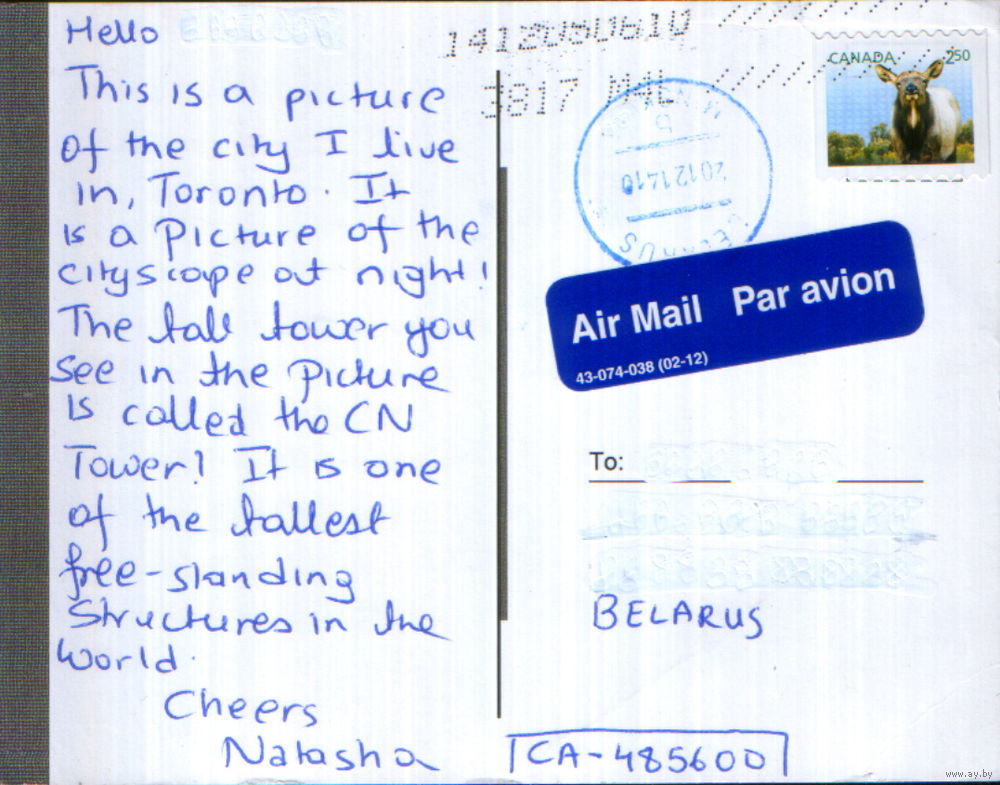 Hello
This is a picture
of the city I live
in, Toronto. It
is a Picture of the
cityscape at night!
The tall tower you
see in the Picture
is called the CN
Tower! It is one
of the tallest
free-standing
structures in the
world.
Cheers
Natasha
3817
CANADA 250
2012 14 10
Air Mail Par avion
43-074-038 (02-12)
To:
BELARUS
CA-485600
www.ay.by